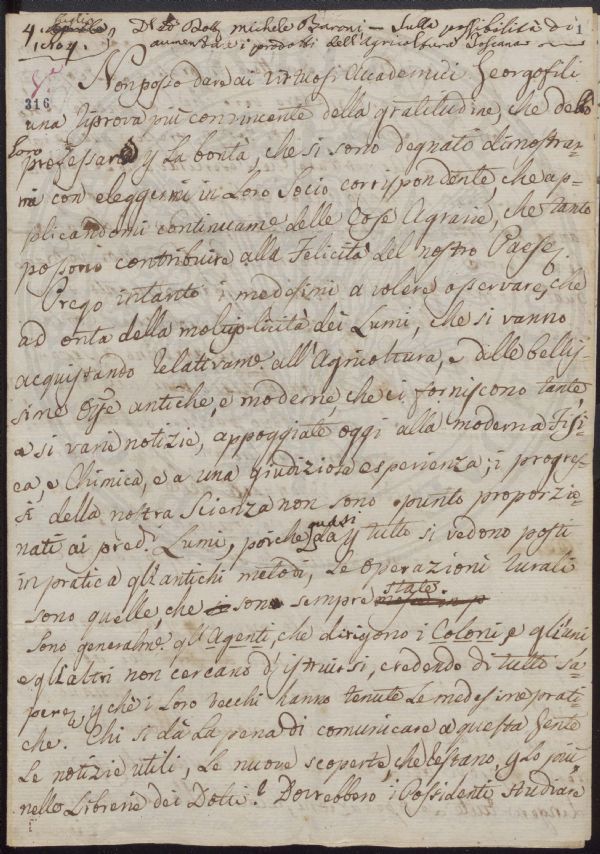 4. Luglio 1804. } Del Sig. Dott. Michele Baroni — Sulla possibilità di
aumentare i prodotti dell'Agricoltura Toscana
1
316
Non posso dare ai virtuosi Accademici Georgofili
una riprova più convincente della gratitudine, che debbo
Loro professare p la bontà, che si sono degnati dimostrar-
mi con eleggermi in Loro Socio corrispondente, che ap-
plicandomi continuame. delle Cose Agrarie, che tanto
possono contribuire alla Felicità del nostro Paese.
Prego intanto i medesimi a volere osservare, che
ad onta della moltiplicità dei Lumi, che si vanno
acquistando relativame. all'Agricoltura, e dalle bellis-
sime Ope antiche, e moderne, che ci forniscono tante
e si varie notizie, appoggiate oggi alla moderna Fisi-
ca, e Chimica, e a una giudiziosa esperienza; i progres-
si della nostra Scienza non sono punto proporzio-
nati ai pred.i Lumi, poiché quasi da p tutto si vedono posti
in pratica gl'antichi metodi, Le operazioni rurali
sono quelle, che sono sempre state
Sono generalme. gl'Agenti, che dirigono i Coloni, e gl'uni
e gl'altri non cercano d'istruirsi, credendo di tutto sa-
pere, p chè i Loro vecchi hanno tenute Le medesime prati-
che. Chi si dà La pena di comunicare a questa Gente
Le notizie utili, Le nuove scoperte, che restano p Lo più
nelle Librerie dei Dotti? Dovrebbero i Possidenti studiare